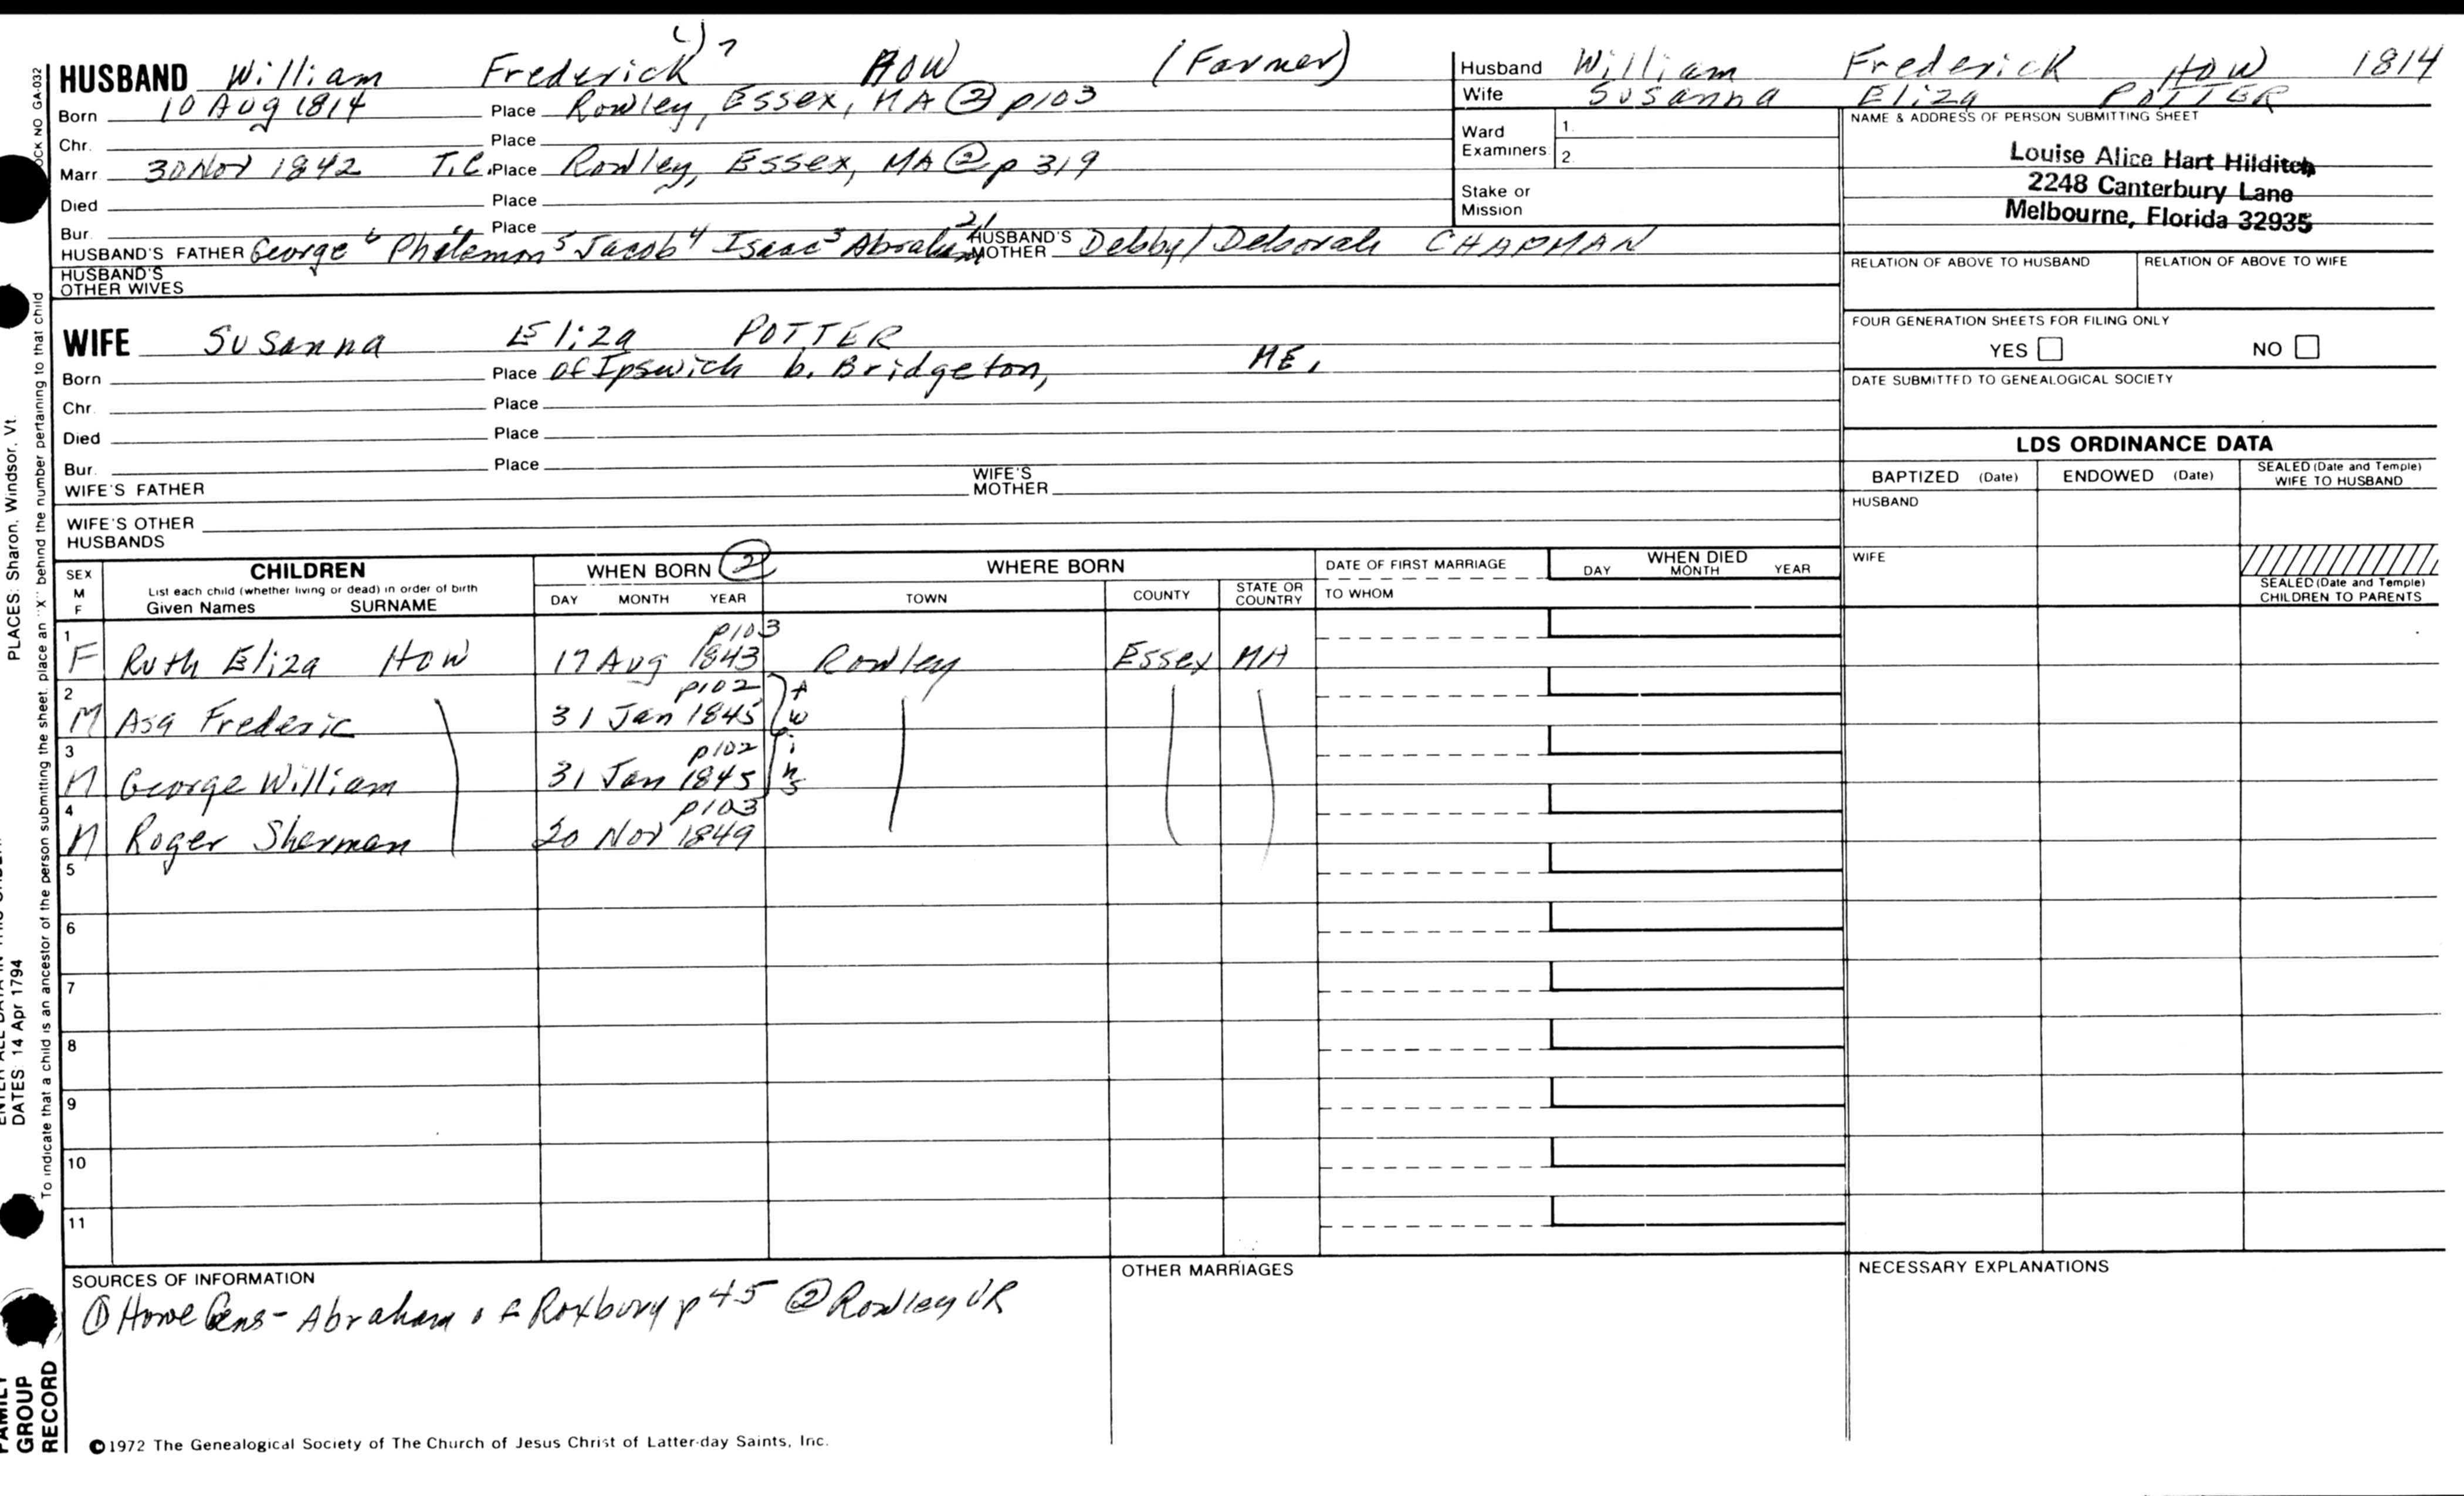 HUSBAND William Frederick 7 HOW (Farmer)
Born 10 Aug 1814 Place Rowley, Essex, MA ② p103
Chr. Place
Marr. 30 Nov 1842 T.C. Place Rowley, Essex, MA ② p 319
Died Place
Bur. Place
HUSBAND'S FATHER George 6 Philemon 5 Jacob 4 Isaac 3 Abraham 2/1 HUSBAND'S MOTHER Debby/Deborah CHAPMAN
HUSBAND'S OTHER WIVES
Husband William Frederick HOW 1814
Wife Susanna Eliza POTTER
Ward Examiners 1. 2.
Stake or Mission
NAME & ADDRESS OF PERSON SUBMITTING SHEET
Louise Alice Hart Hilditch
2248 Canterbury Lane
Melbourne, Florida 32935
RELATION OF ABOVE TO HUSBAND RELATION OF ABOVE TO WIFE
FOUR GENERATION SHEETS FOR FILING ONLY
YES NO
DATE SUBMITTED TO GENEALOGICAL SOCIETY
WIFE Susanna Eliza POTTER
Born Place of Ipswich b. Bridgeton, ME,
Chr. Place
Died Place
Bur. Place
WIFE'S FATHER WIFE'S MOTHER
WIFE'S OTHER HUSBANDS
LDS ORDINANCE DATA
BAPTIZED (Date) ENDOWED (Date) SEALED (Date and Temple) WIFE TO HUSBAND
HUSBAND
WIFE
SEALED (Date and Temple) CHILDREN TO PARENTS
SEX M F CHILDREN
List each child (whether living or dead) in order of birth
Given Names SURNAME
WHEN BORN ②
DAY MONTH YEAR
WHERE BORN
TOWN COUNTY STATE OR COUNTRY
DATE OF FIRST MARRIAGE
TO WHOM
WHEN DIED
DAY MONTH YEAR
p103
1 F Ruth Eliza HOW 17 Aug 1843 Rowley Essex MA
p102
2 M Asa Frederic 31 Jan 1845 twins
p102
3 M George William 31 Jan 1845
p103
4 M Roger Sherman 20 Nov 1849
5
6
7
8
9
10
11
SOURCES OF INFORMATION
① Howe Gens - Abraham of Roxbury p 45 ② Rowley VR
OTHER MARRIAGES
NECESSARY EXPLANATIONS
©1972 The Genealogical Society of The Church of Jesus Christ of Latter-day Saints, Inc.
OCK NO GA-032
To indicate that a child is an ancestor of the person submitting the sheet, place an "X" behind the number pertaining to that child
PLACES: Sharon, Windsor, Vt.
DATES 14 Apr 1794
FAMILY
GROUP
RECORD